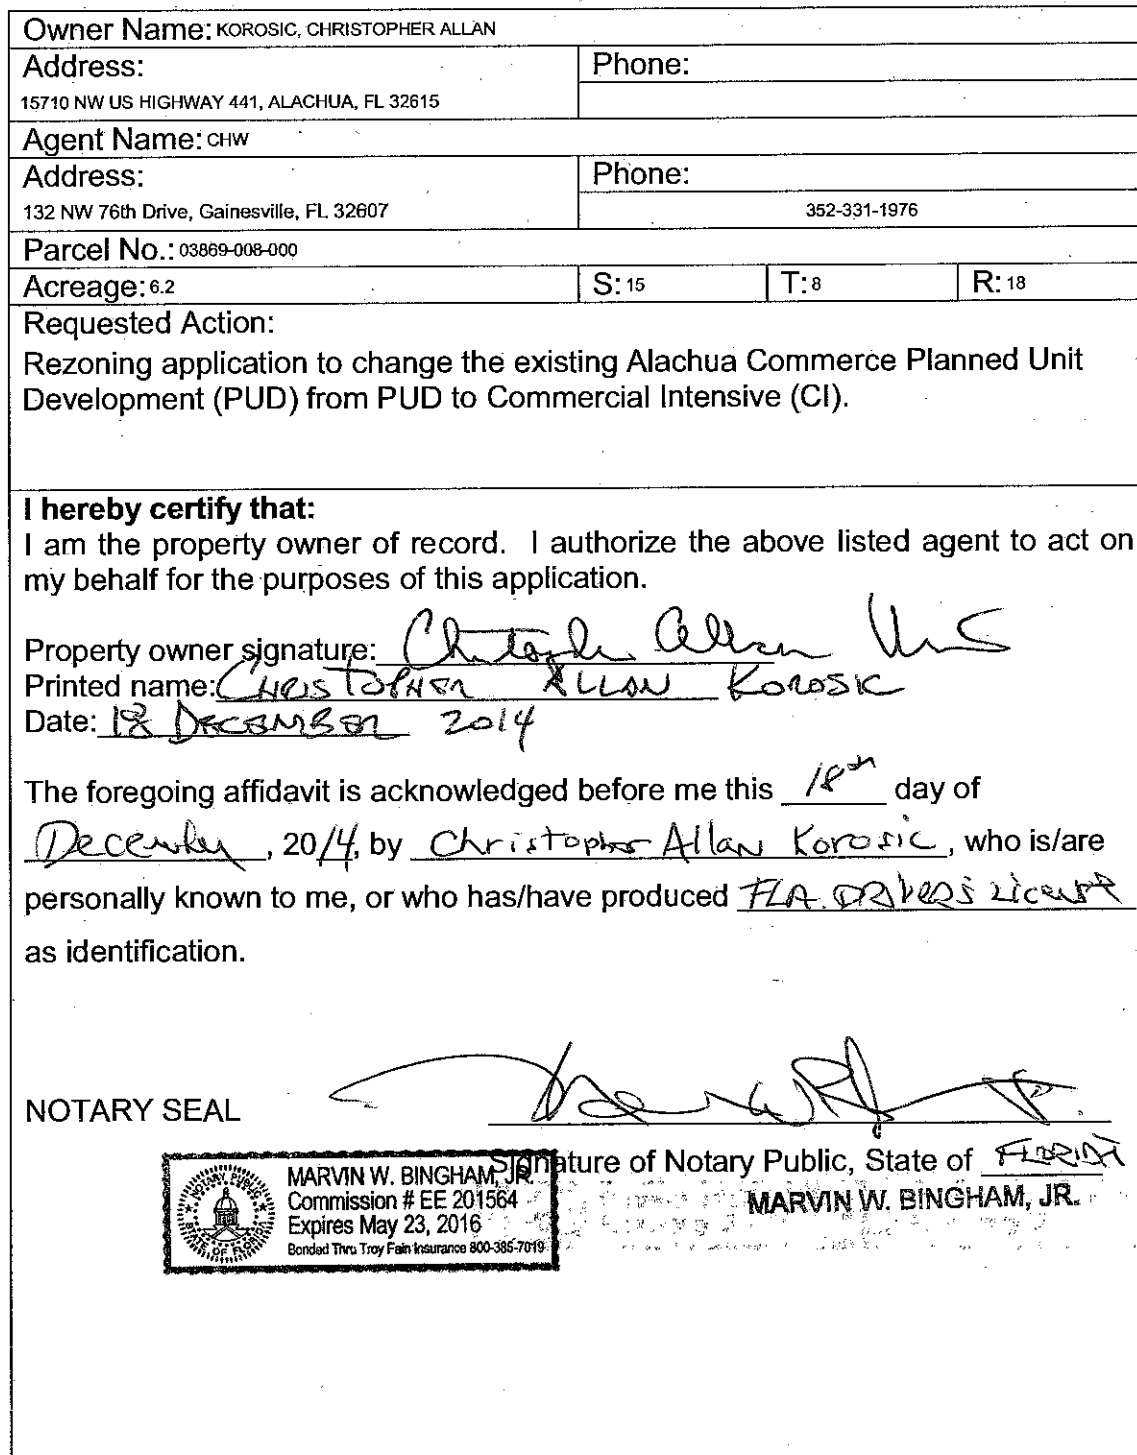 Owner Name: KOROSIC, CHRISTOPHER ALLAN
Address: Phone:
15710 NW US HIGHWAY 441, ALACHUA, FL 32615
Agent Name: CHW
Address: Phone:
132 NW 76th Drive, Gainesville, FL 32607 352-331-1976
Parcel No.: 03869-008-000
Acreage: 6.2 S: 15 T: 8 R: 18
Requested Action:
Rezoning application to change the existing Alachua Commerce Planned Unit
Development (PUD) from PUD to Commercial Intensive (CI).
I hereby certify that:
I am the property owner of record. I authorize the above listed agent to act on
my behalf for the purposes of this application.
Property owner signature:
Printed name: CHRISTOPHER ALLAN KOROSIC
Date: 18 DECEMBER 2014
The foregoing affidavit is acknowledged before me this 18th day of
December, 2014, by Christopher Allan Korosic, who is/are
personally known to me, or who has/have produced FLA. DRIVERS License
as identification.
NOTARY SEAL
Signature of Notary Public, State of FLORIDA
MARVIN W. BINGHAM, JR.
MARVIN W. BINGHAM, JR.
Commission # EE 201564
Expires May 23, 2016
Bonded Thru Troy Fain Insurance 800-385-7019
NOTARY PUBLIC
STATE OF FLORIDA